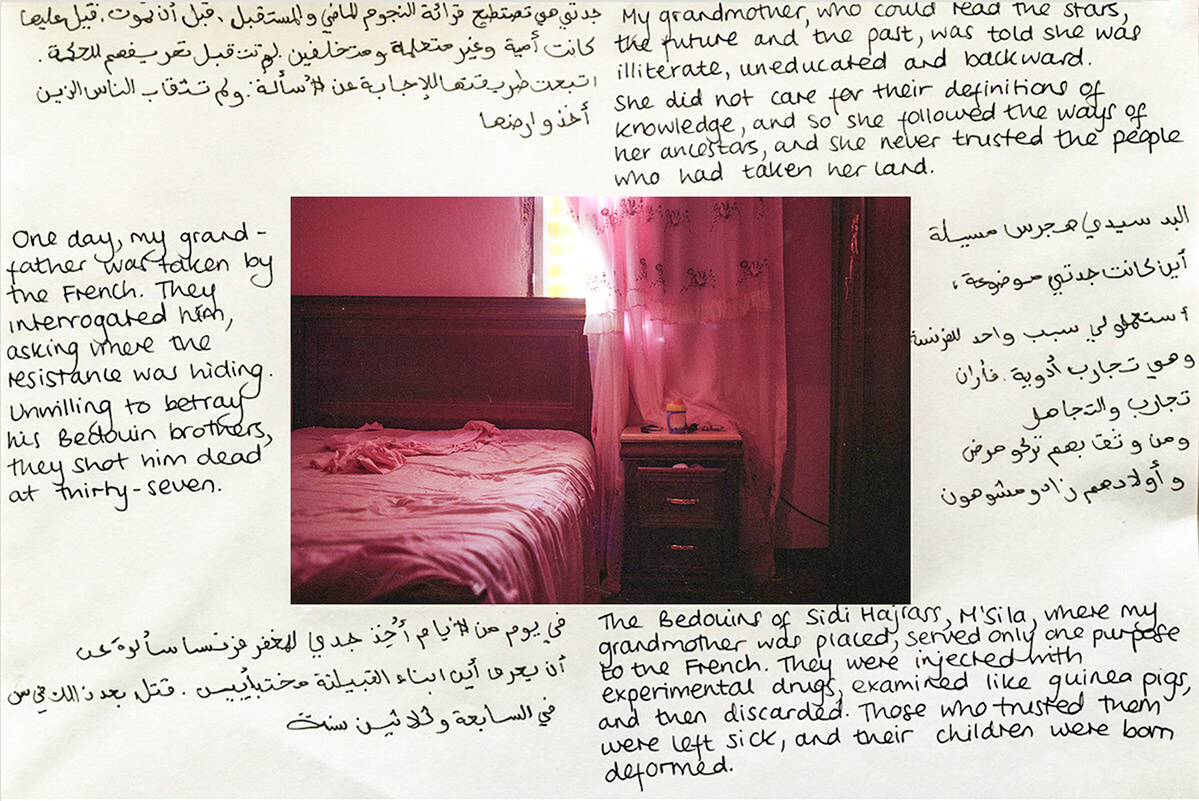 جدتي هي تصتطيع قرائة النجوم الماضي والمستقبل، قبل أن تموت. قيل عليها
كانت أمية وغير متعلمة ومتخلفين. لم تقبل تعريفهم للحكمة.
اتبعت طريقتها للإجابة عن الأسألة. ولم تثقاب الناس الزين
أخذوا رضها
My grandmother, who could read the stars,
the future and the past, was told she was
illiterate, uneducated and backward.
She did not care for their definitions of
knowledge, and so she followed the ways of
her ancestors, and she never trusted the people
who had taken her land.
One day, my grand-
father was taken by
the French. They
interrogated him,
asking where the
resistance was hiding.
Unwilling to betray
his Bedouin brothers,
they shot him dead
at thirty-seven.
البد سيدي هجرس مسيلة
أين كانت جدتي موضوعة،
لي سبب واحد للفرنسة
وهي تجارب أدوية. فأران
تجارب والتجاهل
ومن وثقا بهم تركو مرض
وأولادهم زادو مشوهون
في يوم من الأيام أُخِذ جدي للمخفر فرنسا سألوة عن
أن يعرف أين ابناء القبيلنة مختبأييس. قتل بعد ذالك في سن
في السابعة وثلاثين سنة
The Bedouins of Sidi Hajrass, M'Sila, where my
grandmother was placed, served only one purpose
to the French. They were injected with
experimental drugs, examined like guinea pigs,
and then discarded. Those who trusted them
were left sick, and their children were born
deformed.